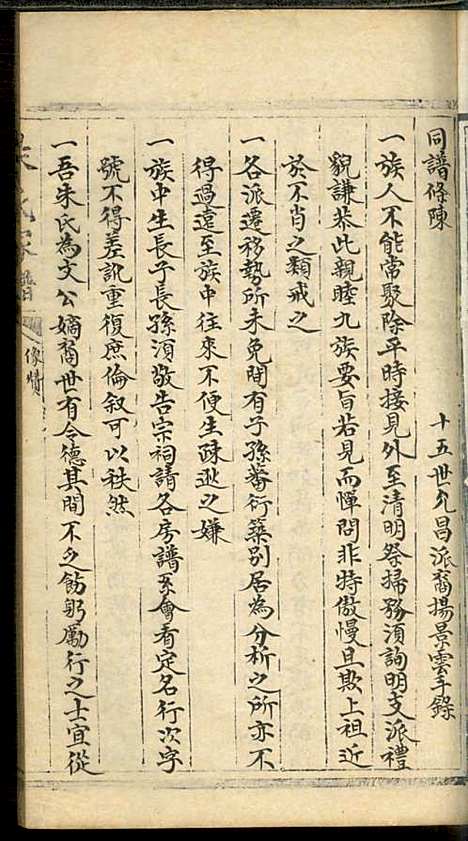 同譜條陳
十五世允昌派裔揚景雲手錄
一族人不能常聚除平時接見外至清明祭掃務須詢明支派禮
貌謙恭此親睦九族要旨若見而憚問非特傲慢且欺上祖近
於不肖之類戒之
一各派遷移勢所未免間有子孫蕃衍築別居為分析之所亦不
得過遠至族中往來不便生疎逖之嫌
一族中生長子長孫須敬告宗祠請各房譜系會看定名行次字
號不得差訛重復庶倫叙可以秩然
一吾朱氏為文公嫡裔世有令德其間不乏飭躬勵行之士宜從
氏家譜
條陳